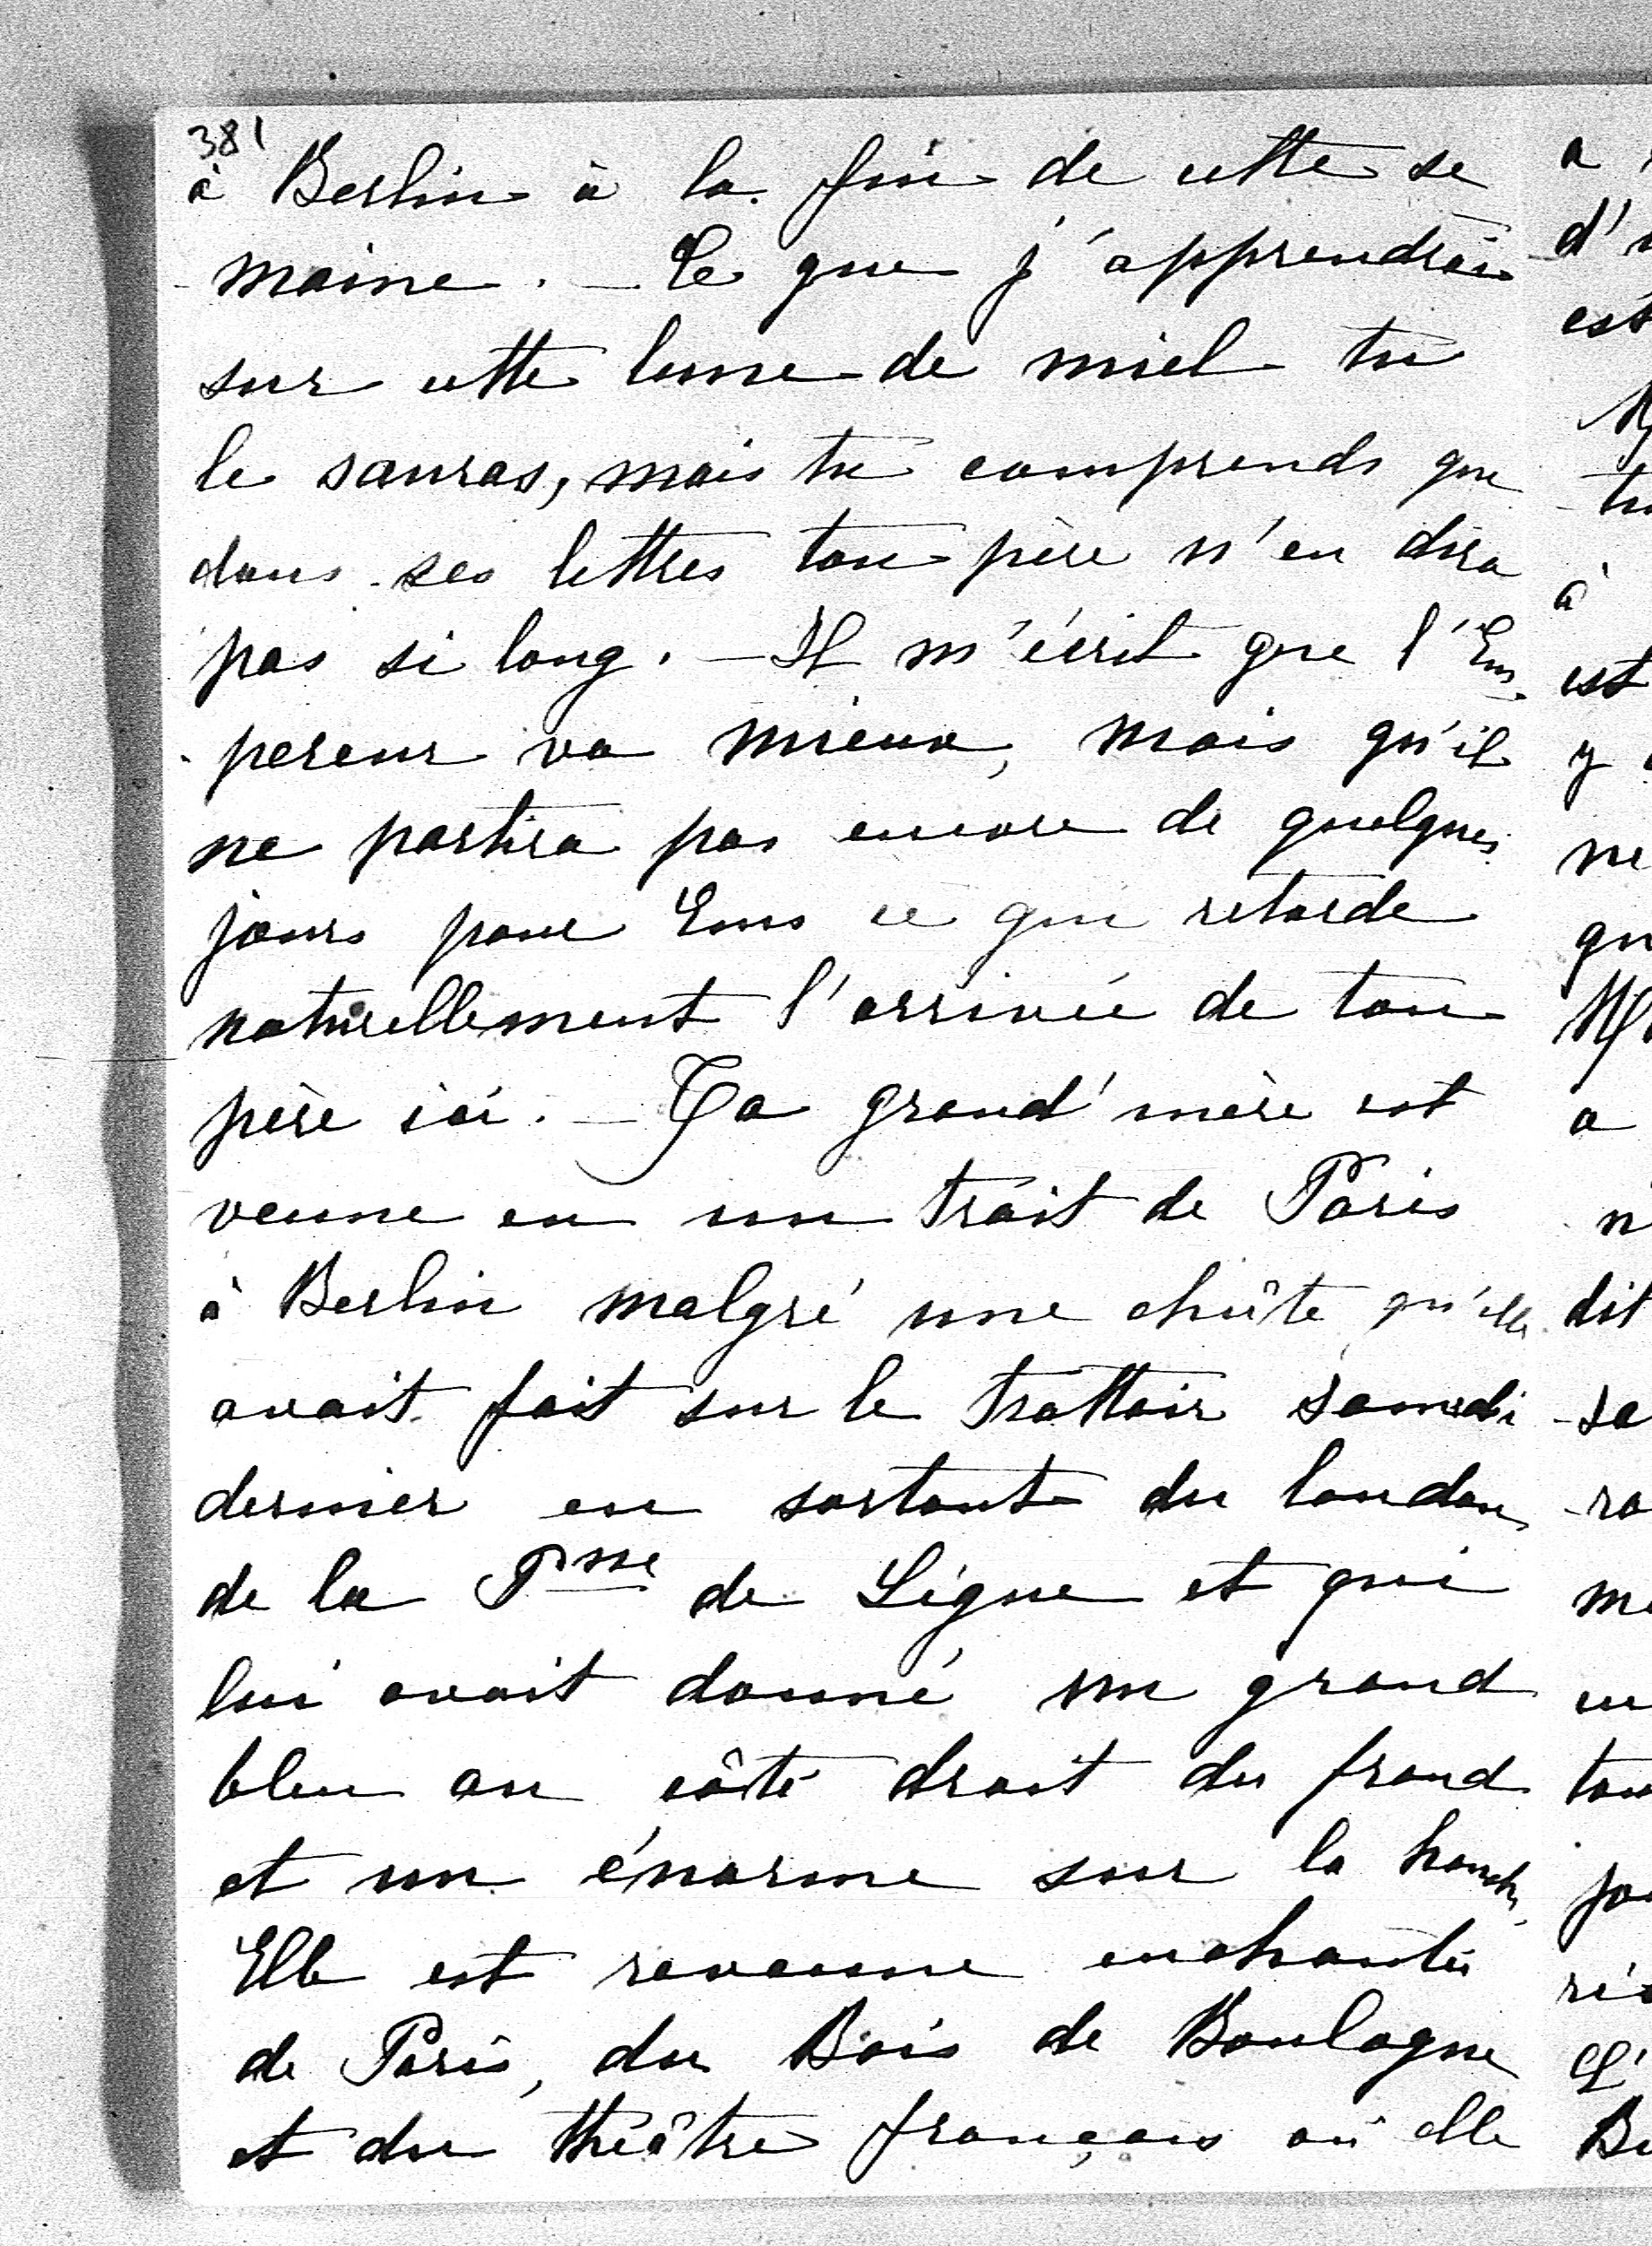 381
à Berlin à la fin de cette se
maine. — Ce que j'apprendrai
sur cette lune de miel tu
le sauras, mais tu comprends que
dans ses lettres ton père n'en dira
pas si long. — Il m'écrit que l'Em-
-pereur va mieux, mais qu'il
ne partira pas encore de quelques
jours pour Ems ce qui retarde
naturellement l'arrivée de ton
père ici. — Ta grand'mère est
venue en un trait de Paris
à Berlin malgré une chûte qu'elle
avait fait sur le trottoir samedi
dernier en sortant du landau
de la Psse de Ligne et qui
lui avait donné un grand
bleu au côté droit du frond
et un énorme sur la hanche.
Elle est revenue enchantée
de Paris, du Bois de Boulogne
et du théâtre français où elle
a
d'
est
tu
à
est
y
ne
qu
a
n'
dit
-sa
-ra
me
en
tou
jo
ré
L'
Bu